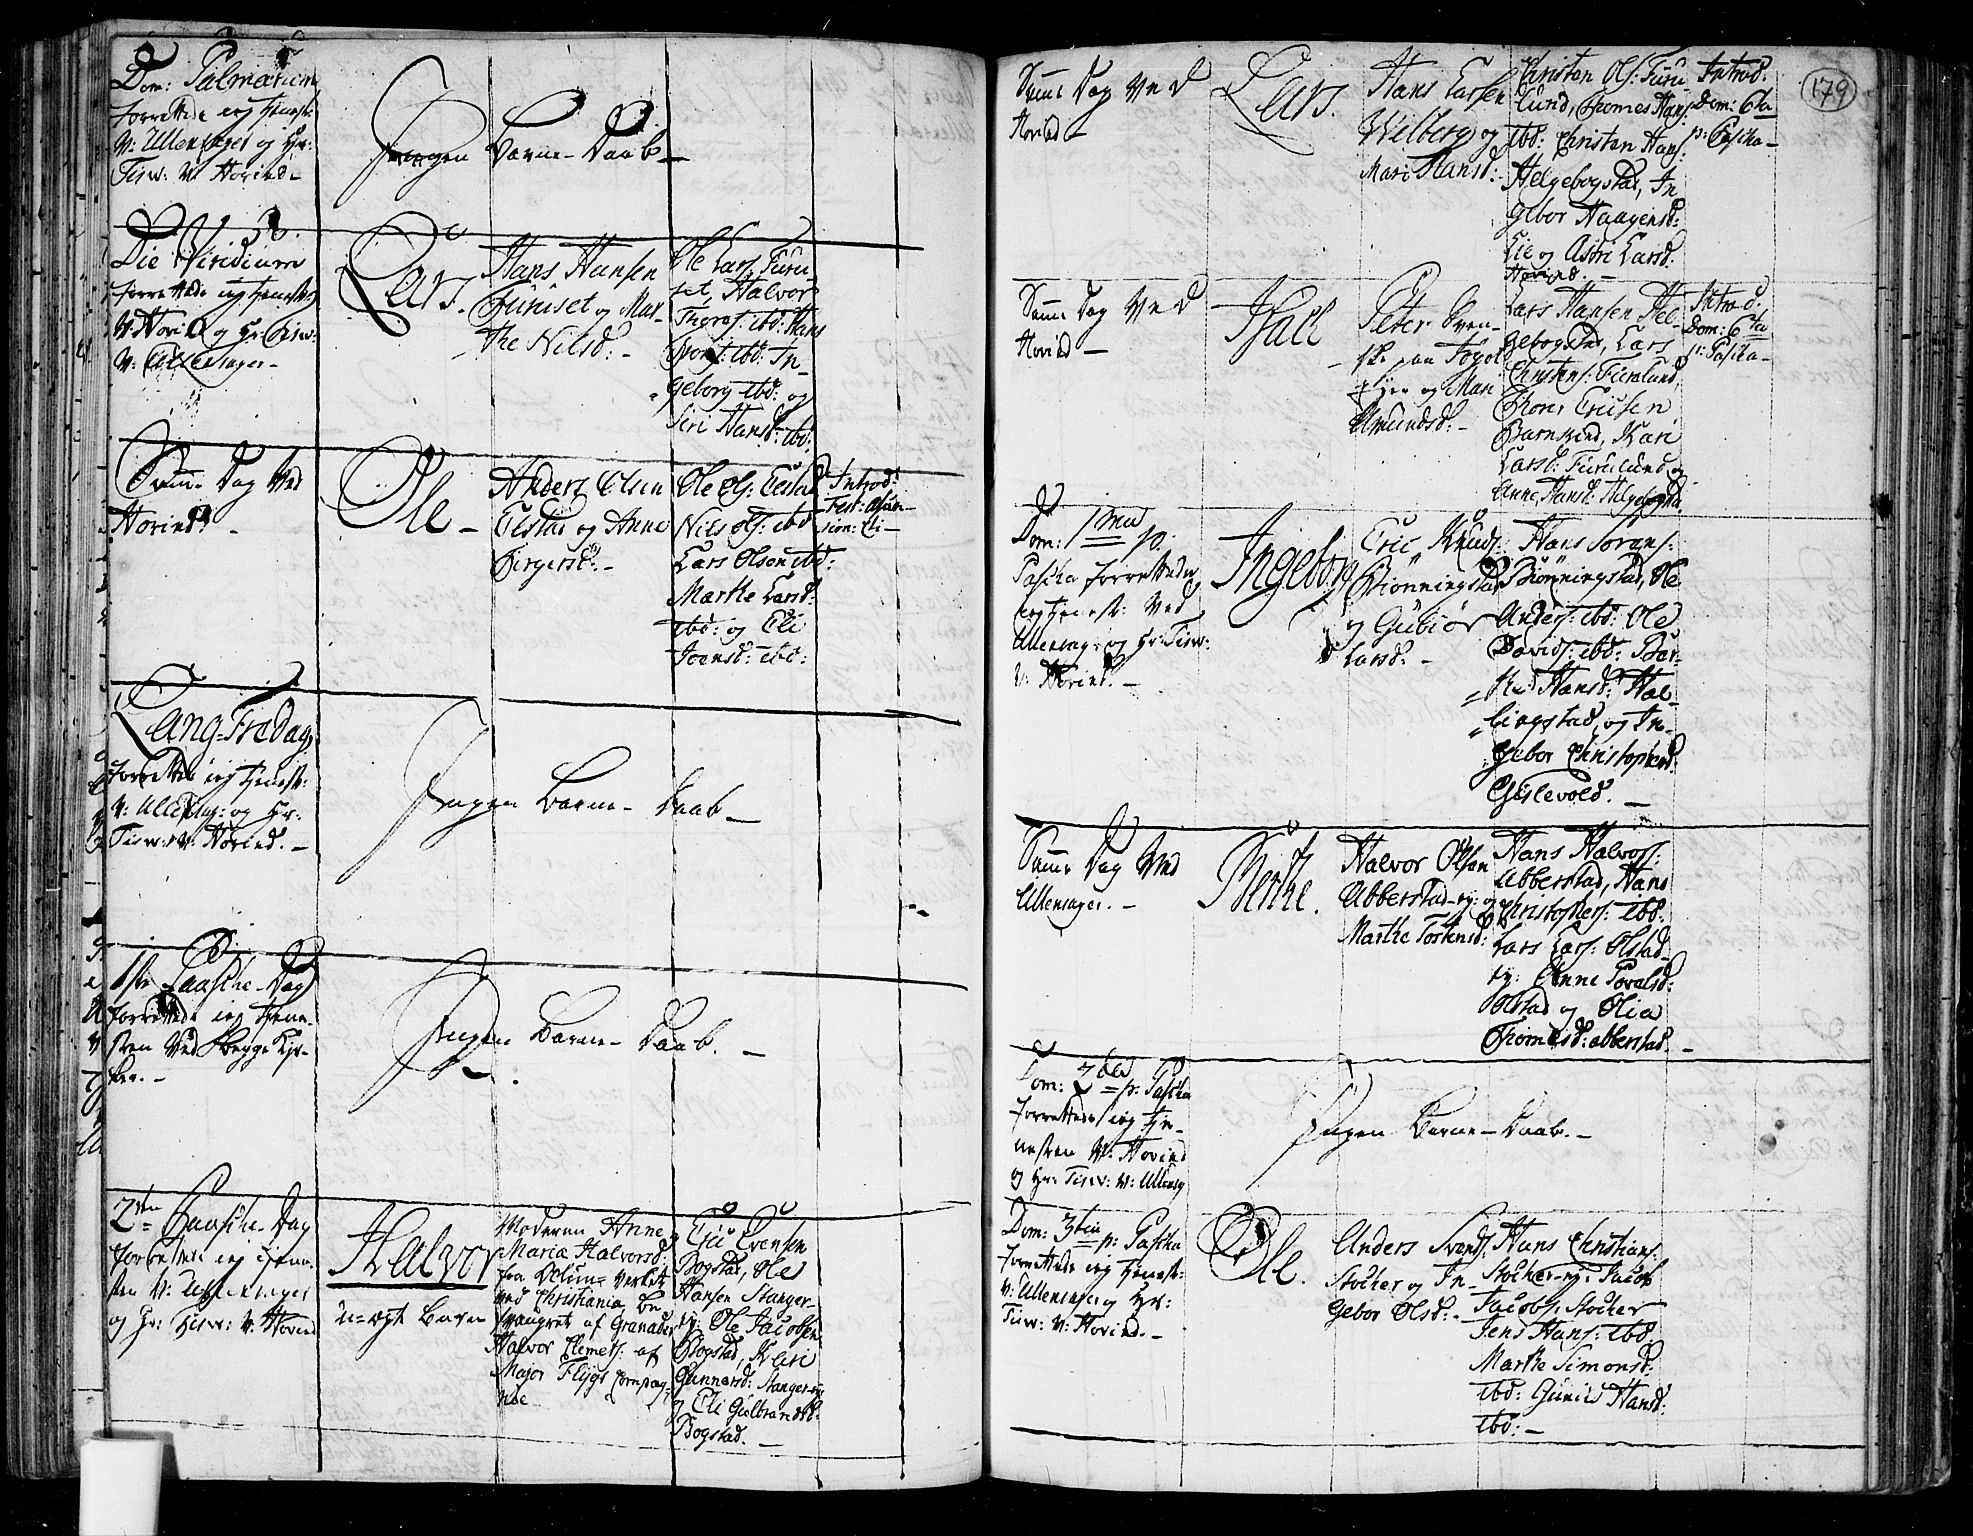 Dom: Palmarum
forrettede ieg tienest:
V: Ullensager og Hr:
Tisw: V: Hovind -
Ingen Barne-Daab -
Die Viridium
forrettede ieg tienest:
V: Hovind og Hr: Tisw:
V: Ullensager -
Lars.
Hans Hansen
Furuset og Mar-
the Nilsd: -
Ole Lars: Furu-
set, Halvor
Thores: ibd: Hans
ibd: In-
geborg ibd: og
Siri Hansd: ibd:
Samme Dag Ved
Hovind -
Ole -
Anders Olsen
Elstad og Anne
Birgersd: -
Ole Ols: Elstad
Nils Ols: ibd:
Lars Olsen ibd:
Marthe Larsd:
ibd: og Eli
Joensd: ibd:
Introd:
Fest:
Lang-Fredag
forrettede ieg tienest:
V: Ullensag: og Hr:
Tisw: V: Hovind. -
Ingen Barne-Daab -
1ste Paasche-Dag
forrettede ieg tiene-
sten Ved Begge Kir-
ker. -
Ingen Barne-Daab. -
2den Paasche-Dag
forrettede ieg tiene-
sten V: Ullensager
og Hr: Tisw: V: Hovind
Halvor
u-ægte Barn
Moderen Anne
Maria Halvorsd:
fra Verket
ved Christiania, be-
svangret af Granader
Halvor Clemets: af
Major Flygs Compag-
nie
Evensen
Bogstad, Ole
Hansen Stanger-
ry: Ole Jacobsen
Bogstad, Kari
Gunnersd: Stanger-ry:
og Eli Gulbrandsd:
Bogstad. -
179
Samme Dag Ved
Hovind -
Lars.
Hans Larsen
Wilberg og
Mari Hansd: -
Christen Ols: Furu-
lund, Thomes Hans:
ibd: Christen Hans:
Helgebogstad, In-
gebor Haagensd:
Lie og Astri Larsd:
Hovind. -
Introd:
Dom: 6ta
p: Pascha -
Samme Dag Ved
Hovind -
Peter Sven-
ske paa Foget-
og Mari
Amundsd: -
Lars Hansen Hel-
gebogstad, Lars
Christens: Furulund,
Thore Ericsen
Kari
Larsd: Furulund og
Anne Hansd: Helgebogstad.
Introd:
Dom: 6ta
p: Pascha -
Dom: 1ma p:
Pascha forrettede
ieg tienest: Ved
Ullensag: og Hr: Tisw:
V: Hovind. -
Ingebor
Eric Knuds:
Biønningstad
og Gubiør
Larsd: -
Hans Sørens:
Biønningstad, Ole
Anders: ibd: Ole
Davids: ibd: Bar-
bra Hansd: Hal-
lingstad, og In-
gebor Christophersd:
Gislevold. -
Samme Dag Ved
Ullensager. -
Berthe.
Halvor Olsen
Abberstad-ry: og
Marthe Tostensd:
Hans Halvors:
Abberstad, Hans
Christophers: ibd:
Lars Lars: Olstad-
ry: Anne Povelsd:
Olstad og Olia
Thomesd: Abberstad. -
Dom: 2da p: Pascha
forrettede ieg tie-
nesten V: Hovind
og Hr: Tisw: V: Ullensag
Ingen Barne-Daab. -
Dom: 3tia p: Pascha
forrettede ieg tienest:
V: Ullensager og Hr:
Tisw: V: Hovind. -
Ole.
Anders Svends:
Stocher og In-
gebor Olsd: -
Hans Christians:
Stocher-ry: Jacob
Jacobs: Stocher
Jens Hans: ibd:
Marthe Simonsd:
ibd: Gunild Hansd:
ibd: -